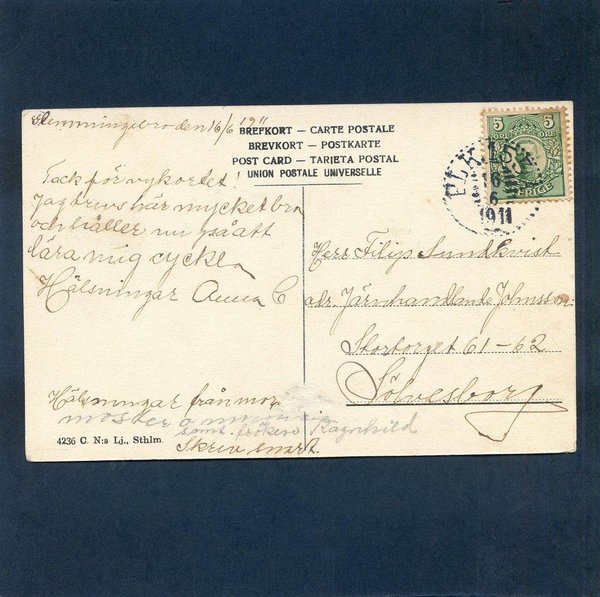 Hemmingebro den 16/6 1911
BREFKORT – CARTE POSTALE
BREVKORT – POSTKARTE
POST CARD – TARJETA POSTAL
UNION POSTALE UNIVERSELLE
5 5
ÖRE ÖRE
SVERIGE
PLK 15
16
6
1911
Tack för vykortet!
Jag trivs här mycket bra
och håller nu på att
lära mig cyckla
Hälsningar Anna C
Herr Filip Sundkvist
adr. Järnhandlande Johnsson
Stortorget 61-62
Sölvesborg
Hälsningar från mor
moster o
samt fröken Ragnhild
Skriv snart.
4236 C. N:s Lj., Sthlm.